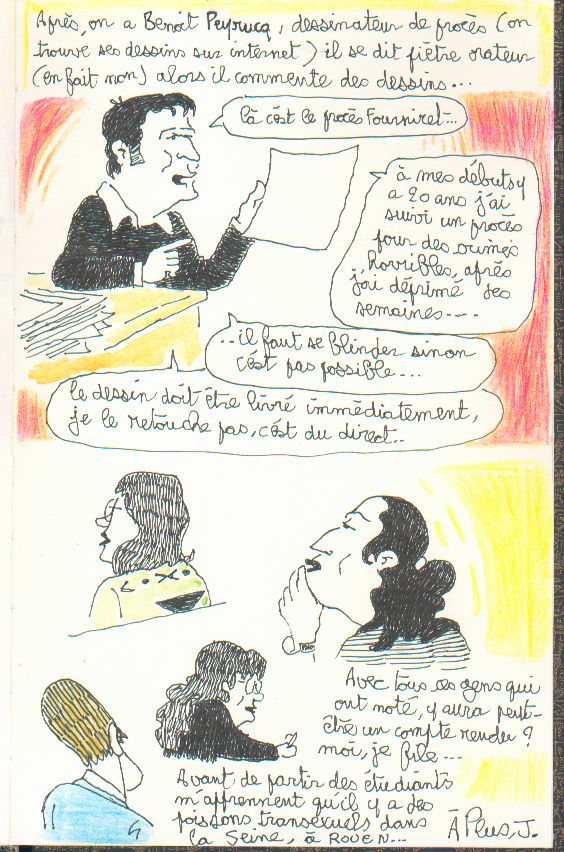 Après, on a Benoît Peyrucq, dessinateur de procès (on
trouve ses dessins sur internet) il se dit piètre orateur
(en fait non) alors il commente des dessins...
là c'est le procès Fourniret...
à mes débuts y
a 20 ans j'ai
suivi un procès
pour des crimes
horribles, après
j'ai déprimé des
semaines....
..il faut se blinder sinon
c'est pas possible...
le dessin doit être livré immédiatement,
je le retouche pas, c'est du direct..
Avec tous ces gens qui
ont noté, y aura peut-
être un compte rendu ?
moi, je file...
Avant de partir des étudiants
m'apprennent qu'il y a des
poissons transexuels dans
la Seine, à ROUEN...
À Plus, J.